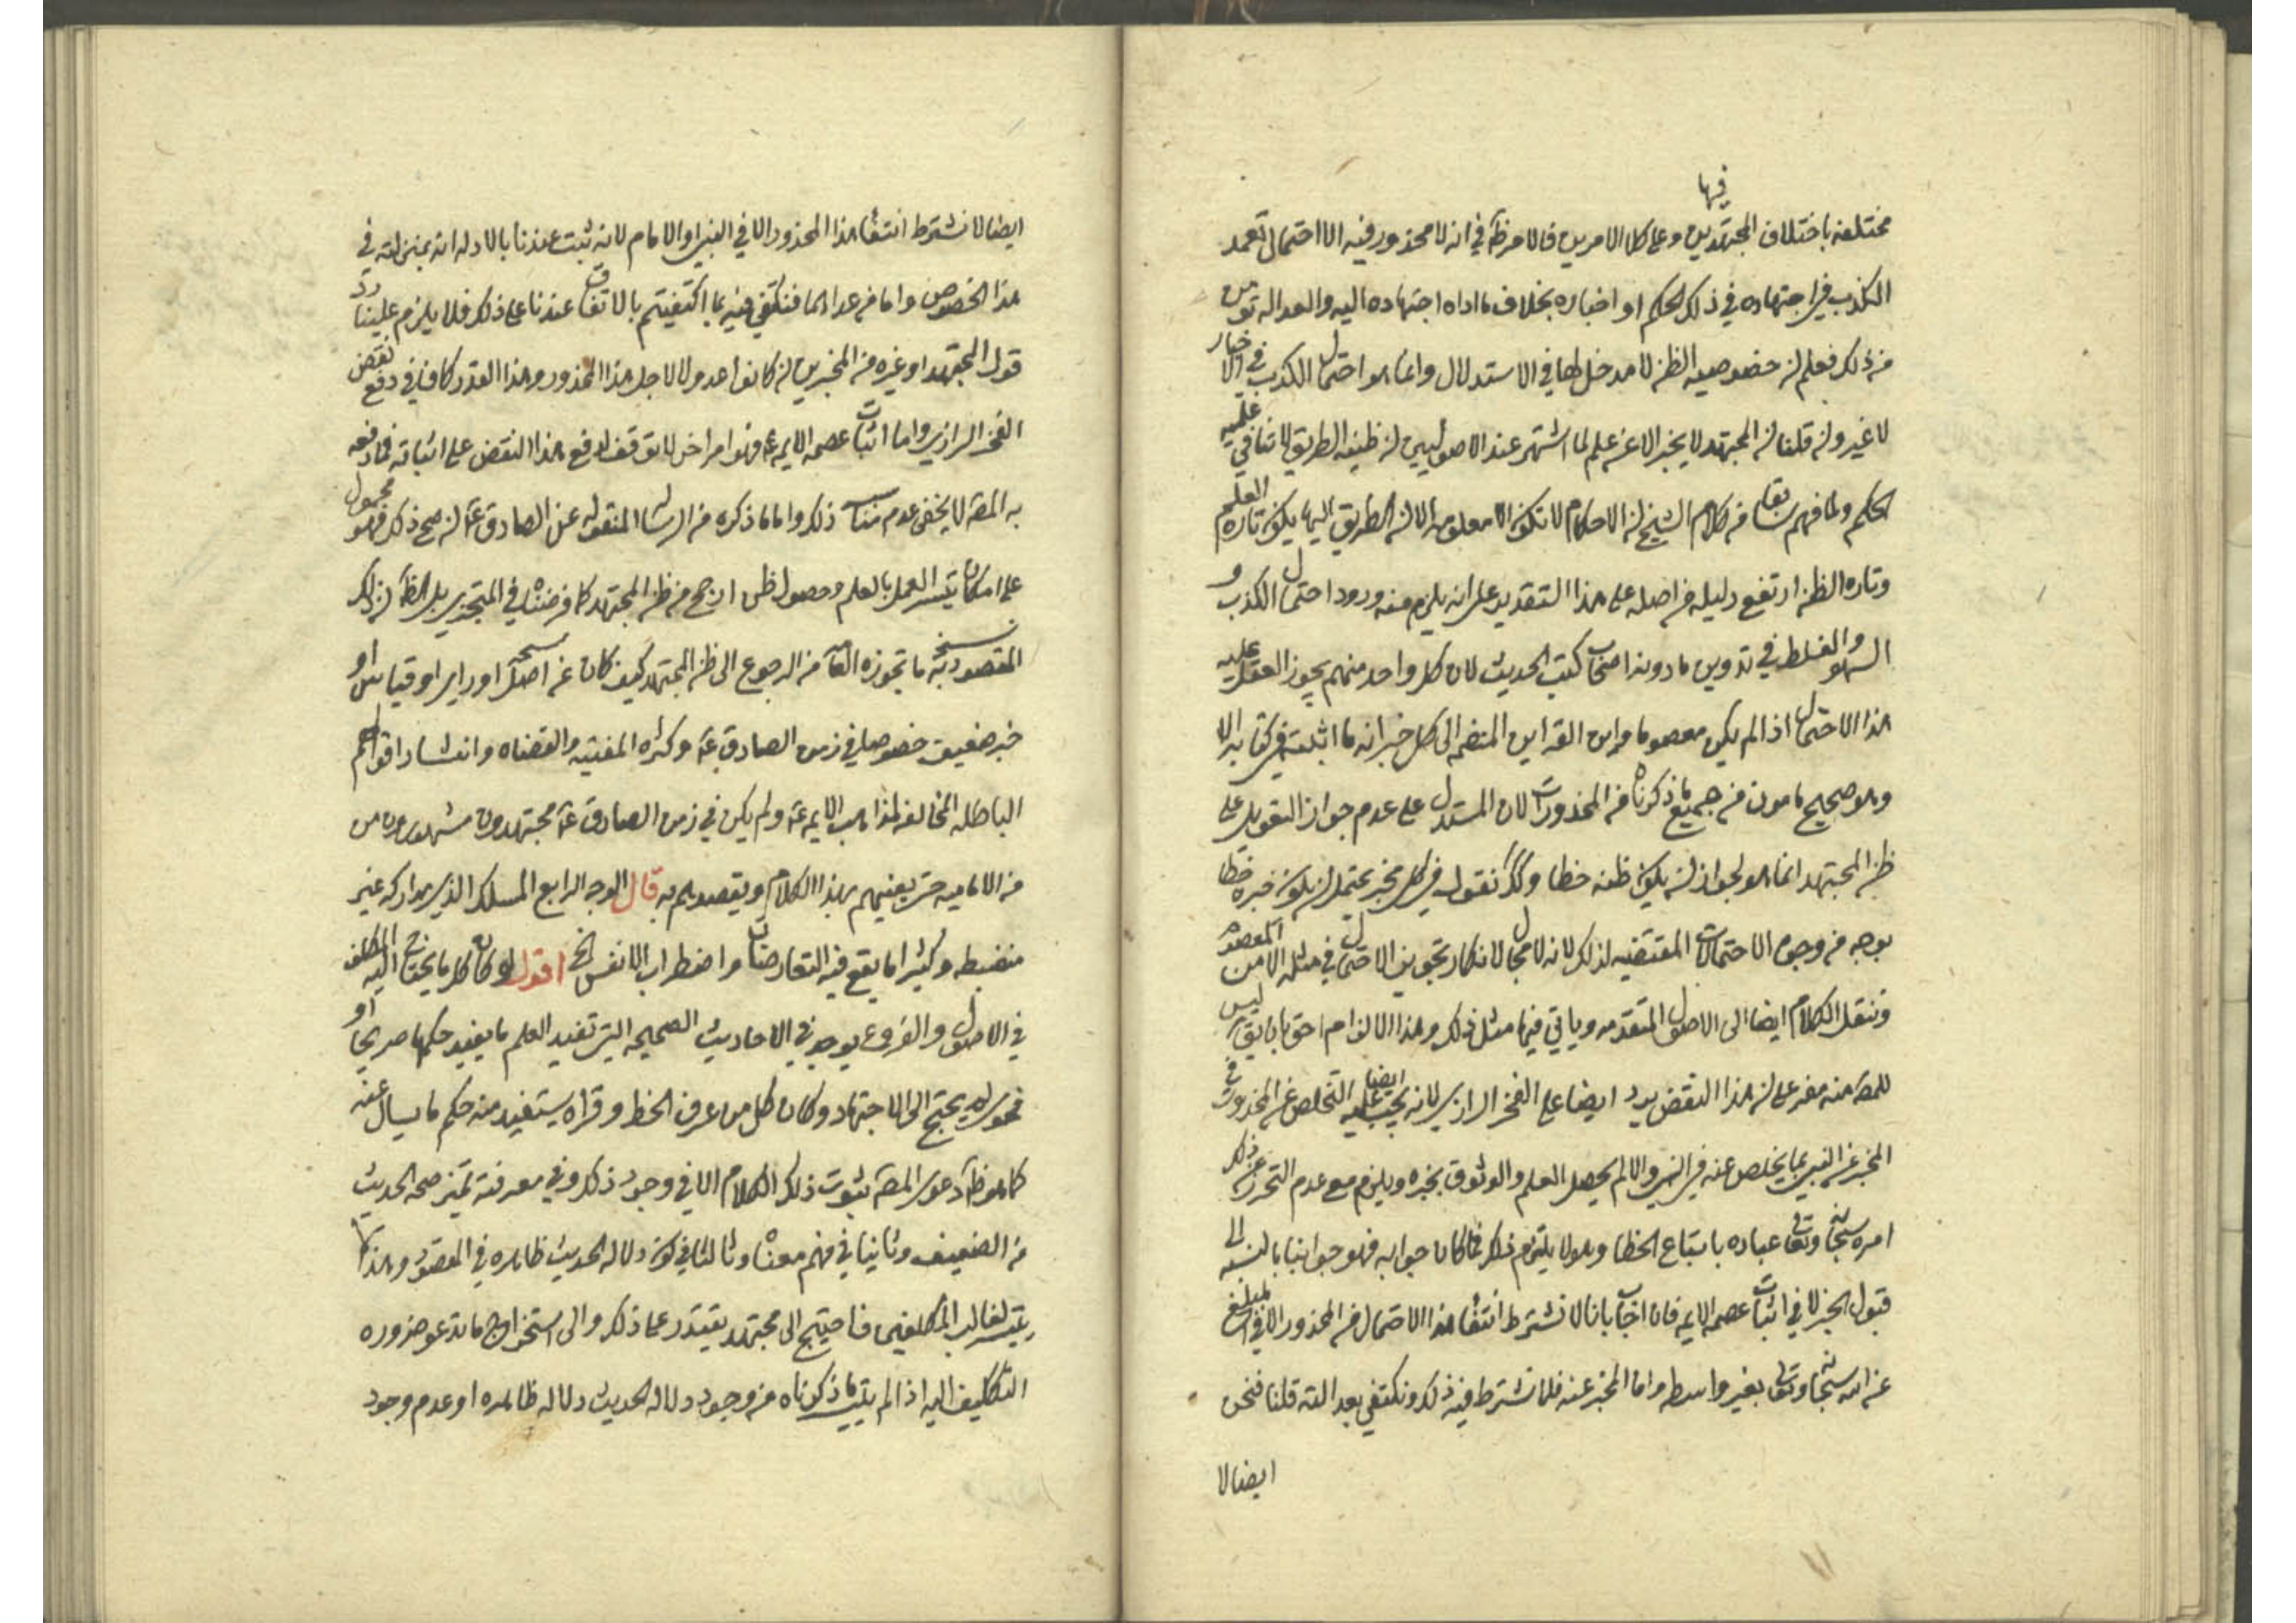 فيها
مختلفة باختلاف المجتهدين وعلى كلا الامرين فالامر ظ في انه لا محذور فيه الا احتمال تعمد
الكذب في اجتهاده في ذلك الحكم او اخباره بخلاف ما اداه اجتهاده اليه والعداله تومن
من ذلك فعلم ان خصوصيه الظن لا مدخل لها في الاستدلال وانما هو احتمال الكذب في الاخبار
لا غير وان قلنا ان المجتهد لا يخبر الا عن علم لما اشتهر عند الاصوليين ان ظنيه الطريق لا تنافي علميه
الحكم ولما فهم سابقا من كلام الشيخ ان الاحكام لا تكون الا معلومه الا ان الطريق اليها يكون تاره العلم
وتاره الظن ارتفع دليله من اصله على هذا التقدير على انه يلزم منه ورود احتمال الكذب و
السهو والغلط في تدوين ما دونه اصحاب كتب الحديث لان كل واحد منهم يجوز العقل عليه
هذا الاحتمال اذا لم يكن معصوما واين القراين المنضمه الى كل خبر انه ما اثبته في كتابه الا
وهو صحيح مامون من جميع ما ذكرناه من المحذورات لان المستدل على عدم جواز التعويل على
ظن المجتهد انما هو لجواز ان يكون ظنه خطا وكذا نقول في كل مخبر يحتمل ان يكون خبره خطا
بوجه من وجوه الاحتمالات المقتضيه لذلك لانه لا مجال لانكار تجويز الاحتمال في مثله الا من المعصوم
وننقل الكلام ايضا الى الاصول المتقدمه وياتي فيها مثل ذلك وهذا الالزام احق بان يق ليس
للمص منه مفر على ان هذا النقض يرد ايضا على الفخر الرازي لانه يجب عليه ايضا التخلص عن المحذور في
المخبر عن النبي بما يخلص عنه في النبي والا لم يحصل العلم والوثوق بخبره ويلزم مع عدم التحرز عن ذلك
امره سبحانه وتعالى عباده باتباع الخطا وهو لا يلتزم ذلك فما كان جوابه فهو جوابنا بالنسبه الى
قبول الخبر لا في اثبات عصمه الايمه فان اجاب بانا لا نشترط انتفاء هذا الاحتمال من المحذور الا في المبلغ
عن الله سبحانه وتعالى بغير واسطه واما المخبر عنه فلا نشترط فيه ذلك ونكتفي بعدالته قلنا فنحن
ايضا لا
ايضا لا نشترط انتفاء هذا المحذور الا في النبي او الامام لانه ثبت عندنا بالادله انه بمنزلته في
هذا الخصوص واما من عداهما فنكتفي فيه بما اكتفيتم بالاتفاق عندنا على ذلك فلا يلزم علينا رد
قول المجتهد او غيره من المخبرين ان كانوا عدولا لاجل هذا المحذور وهذا القدر كاف في دفع نقض
الفخر الرازي واما اثبات عصمه الايمه ع فهو امر اخر لا توقف لدفع هذا النقض على اثباته فما دفعه
به المص لا يخفى عدم مناسبته ذلك واما ما ذكره من الرساله المنقوله عن الصادق ع ان صح ذلك فهو محمول
على امكان تيسر العمل بالعلم وحصول ظن ارجح من ظن المجتهد كما فرضناه في المتجزي بل الظ ان ذلك
المقصود به نسخ ما تجوزه العامه من الرجوع الى ظن المجتهد كيف كان عن استحسان او راي او قياس او
خبر ضعيف خصوصا في زمن الصادق ع وكثره المفتيه والقضاه وانتشار اقوالهم
الباطله المخالفه لمذاهب الايمه ع ولم يكن في زمن الصادق ع مجتهدون مشهورون من
من الاماميه حتى يعنيهم بهذا الكلام ويقصدهم به قال الوجه الرابع المسلك الذي مداركه غير
منضبطه وكثيرا ما يقع فيه التعارضات واضطراب الانفس الخ اقول لو كان كلما يحتاج اليه المكلف
في الاصول والفروع يوجد في الاحاديث الصحيحه التي تفيد العلم ما يفيد حكمها صريحا او
فحوى لم يحتج الى الاجتهاد وكان كل من عرف الخط وقراه يستفيد منه حكم ما يسال عنه
كما هو ظ دعوى المص بثبوت ذلك الكلام الا في وجود ذلك وفي معرفته تميز صحه الحديث
من الضعيف وثانيا في فهم معناه وثالثا في كون دلاله الحديث ظاهره في المقصود وهذا لا
يتيسر لغالب المكلفين فاحتيج الى مجتهد يقتدر على ذلك والى استخراج ما تدعو ضروره
التكليف اليه اذا لم يتيسر ما ذكرناه من وجود دلاله الحديث دلاله ظاهره او عدم وجود